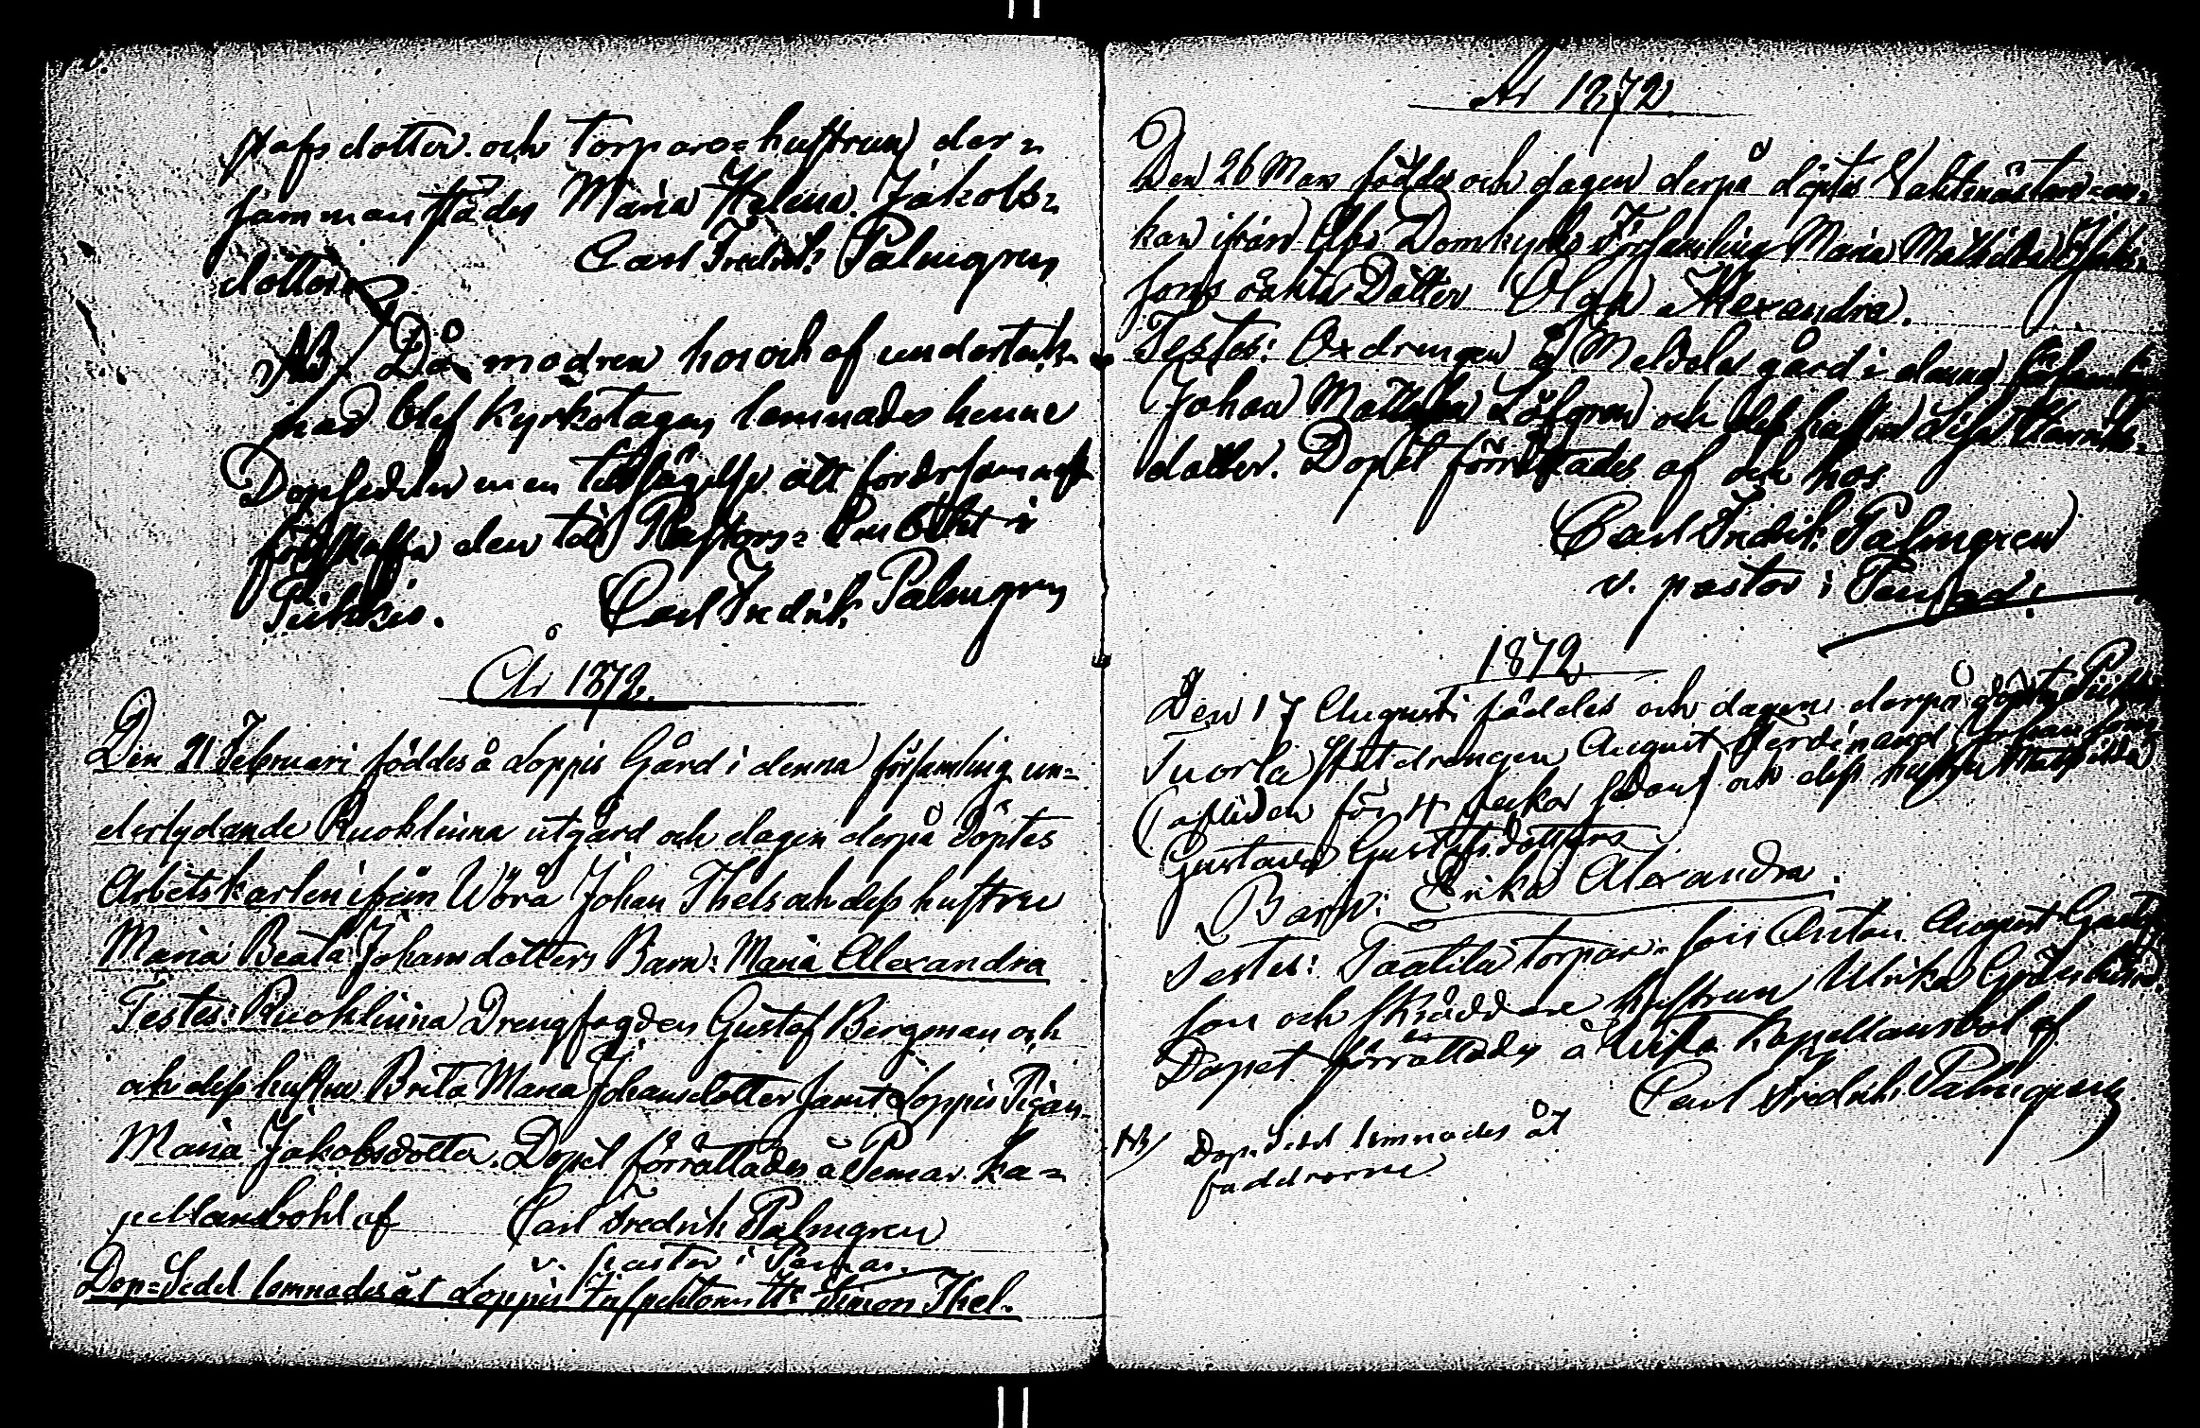 stafsdotter och Torpare-hustrun der-
sammanstädes Maria Helena Jakobs-
dotter. Carl Fredrik Palmgren
NB/ Då modren hos och af underteck-
nad blef Kyrkotagen lemnades henne
Dopsedeln men tillsägelse att fordersammast
förskaffa den till Pastors-Embetet i
Pikkis. Carl Fredrik Palmgren
År 1872.
Den 21 Februari föddes å Loppis Gård i denna församling un-
derlydande Ruohlinna utgård och dagen derpå döptes
Arbetskarlen ifrån Wörå Johan Thels och dess hustru
Maria Beata Johansdotters Barn: Maria Alexandra
Testes: Ruohlinna Drengfogden Gustaf Bergman och
och dess hustru Brita Maria Johansdotter samt Loppis Pigan
Maria Jakobsdotter. Dopet förrättades å Pemar ka-
pellansbohl af Carl Fredrik Palmgren
v. pastor i Pemar.
Dop-Sedel lemnades åt Loppis Inspektorn Hr Simon Thel.
År 1872.
Den 26 Mars föddes och dagen derpå döptes
kan ifrån Åbo Domkyrko Församling Maria Mathilda
sons oäkta Dotter Olga Alexandra.
Testes: Oxdrengen å Meldola gård i denna församling
Johan Löfgren och dess hustru Lisa
dotter. Dopet förrättades af och hos
Carl Fredrik Palmgren
v. pastor i Pemar.
1872
Den 17 Augusti föddes och dagen derpå döptes
Tuorla Statdrengen August Ferdinand
(afliden för 4 veckor sedan) och dess hustru
Gustava Gustafsdotters
Barn: Erika Alexandra.
Testes: Taatila torpare-son Anton August
son och skräddare hustrun Ulrika
Dopet förrättades å kapellansbol af
Carl Fredrik Palmgren
NB/ Dop-Sedel lemnades åt
faddrarne